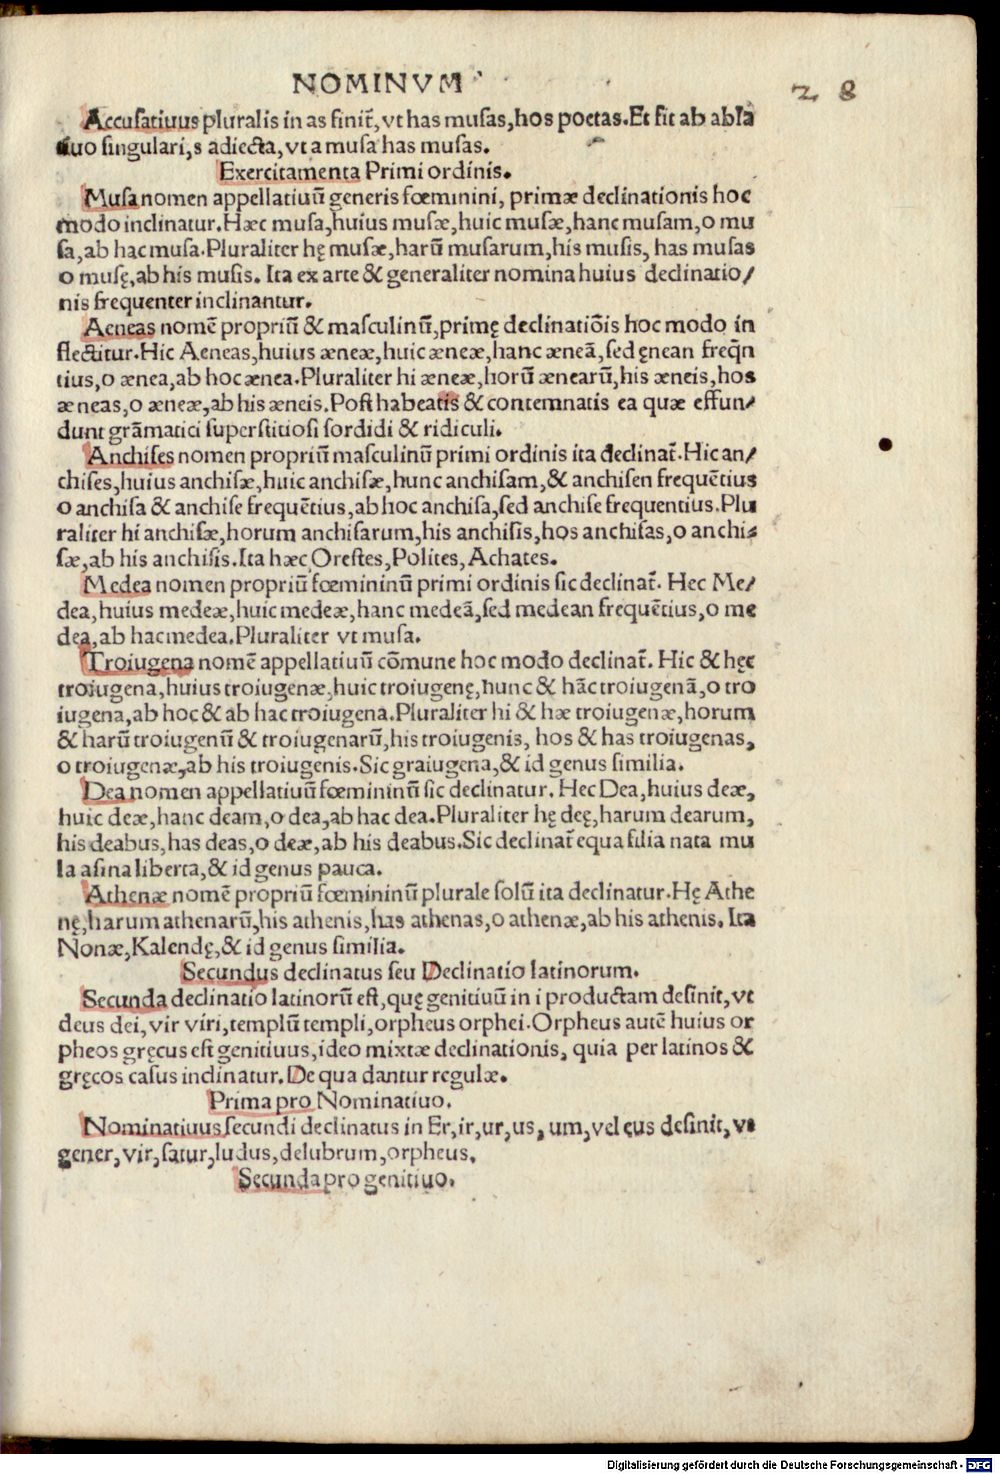 NOMINVM
28
Accusatiuus pluralis in as finit᷑, vt has musas, hos poetas. Et fit ab abla
tiuo singulari, s adiecta, vt a musa has musas.
Exercitamenta Primi ordinis.
Musa nomen appellatiuū generis fœminini, primæ declinationis hoc
modo inclinatur. Hæc musa, huius musæ, huic musæ, hanc musam, o mu
sa, ab hac musa. Pluraliter hę musæ, harū musarum, his musis, has musas
o musę, ab his musis. Ita ex arte & generaliter nomina huius declinatio/
nis frequenter inclinantur.
Aeneas nomē propriū & masculinū, primę declinatiōis hoc modo in
flectitur. Hic Aeneas, huius æneæ, huic æneæ, hanc æneā, sed ęnean freq̄n
tius, o ænea, ab hoc ænea. Pluraliter hi æneæ, horū ænearū, his æneis, hos
æneas, o æneæ, ab his æneis. Post habeatis & contemnatis ea quæ effun/
dunt grāmatici superstitiosi sordidi & ridiculi.
Anchises nomen propriū masculinū primi ordinis ita declinat᷑. Hic an/
chises, huius anchisæ, huic anchisæ, hunc anchisam, & anchisen frequētius
o anchisa & anchise frequētius, ab hoc anchisa, sed anchise frequentius. Plu
raliter hi anchisæ, horum anchisarum, his anchisis, hos anchisas, o anchi⸗
sæ, ab his anchisis. Ita hæc Orestes, Polites, Achates.
Medea nomen propriū fœmininū primi ordinis sic declinat᷑. Hec Me/
dea, huius medeæ, huic medeæ, hanc medeā, sed medean frequētius, o me
dea, ab hac medea. Pluraliter vt musa.
Troiugena nomē appellatiuū cōmune hoc modo declinat᷑. Hic & hęc
troiugena, huius troiugenæ, huic troiugenę, hunc & hāc troiugenā, o tro
iugena, ab hoc & ab hac troiugena. Pluraliter hi & hæ troiugenæ, horum
& harū troiugenū & troiugenarū, his troiugenis, hos & has troiugenas,
o troiugenæ, ab his troiugenis. Sic graiugena, & id genus similia.
Dea nomen appellatiuū fœmininū sic declinatur. Hec Dea, huius deæ,
huic deæ, hanc deam, o dea, ab hac dea. Pluraliter hę deę, harum dearum,
his deabus, has deas, o deæ, ab his deabus. Sic declinat᷑ equa filia nata mu
la asina liberta, & id genus pauca.
Athenæ nomē propriū fœmininū plurale solū ita declinatur. Hę Athe
nę, harum athenarū, his athenis, has athenas, o athenæ, ab his athenis. Ita
Nonæ, Kalendę, & id genus similia.
Secundus declinatus seu Declinatio latinorum.
Secunda declinatio latinorū est, quę genitiuū in i productam desinit, vt
deus dei, vir viri, templū templi, orpheus orphei. Orpheus autē huius or
pheos gręcus est genitiuus, ideo mixtæ declinationis, quia per latinos &
gręcos casus inclinatur. De qua dantur regulæ.
Prima pro Nominatiuo.
Nominatiuus secundi declinatus in Er, ir, ur, us, um, vel eus desinit, vt
gener, vir, satur, ludus, delubrum, orpheus.
Secunda pro genitiuo.
Digitalisierung gefördert durch die Deutsche Forschungsgemeinschaft - DFG